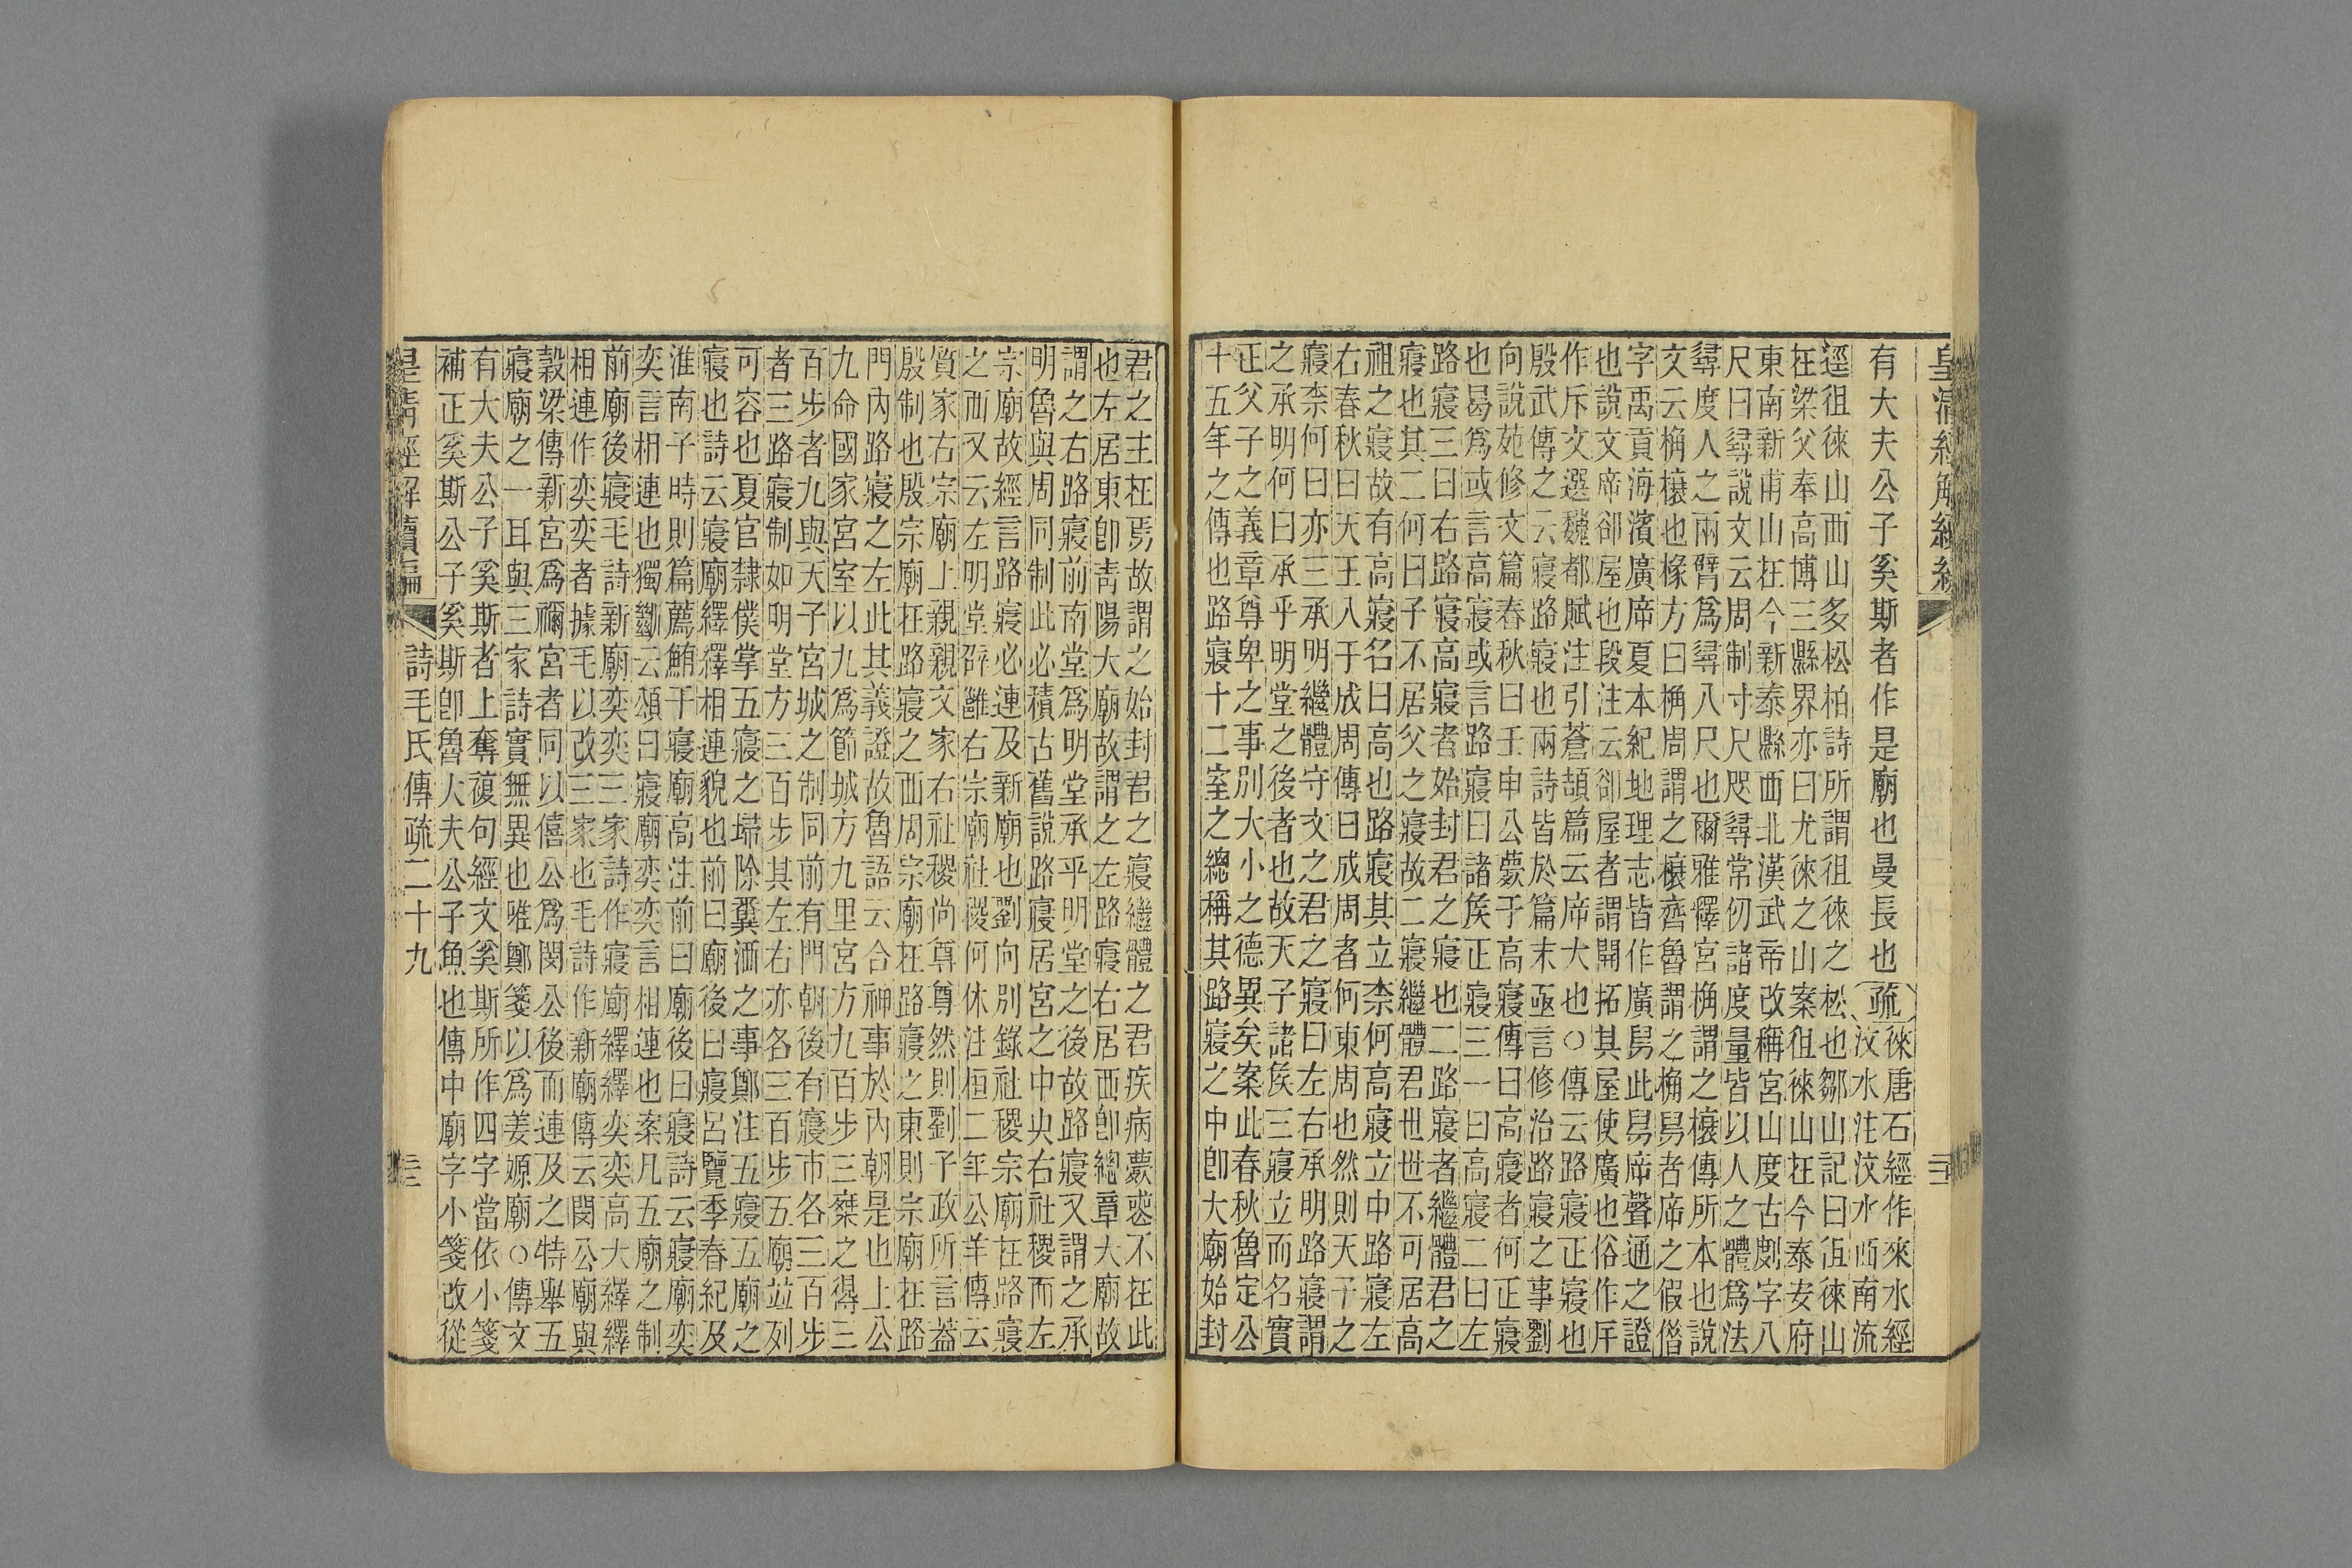 皇清經解續編
有大夫公子奚斯者作是廟也曼長也疏徠唐石經作來水經
汶水注汶水西南流
逕徂徠山西山多松柏詩所謂徂徠之松也鄒山記曰徂徠山
在梁父奉高博三縣界亦曰尤徠之山案徂徠山在今泰安府
東南新甫山在今新泰縣西北漢武帝改稱宮山度古劇字八
尺曰尋說文云周制寸尺咫尋常仞諸度量皆以人之體爲法
尋度人之兩臂爲尋八尺也爾雅釋宮桷謂之榱傳所本也說
文云桷榱也椽方曰桷周謂之榱齊魯謂之桷舄者席之假借
字禹貢海濱廣席夏本紀地理志皆作廣舄此舄席聲通之證
也說文席卻屋也段注云卻屋者謂開拓其屋使廣也俗作斥
作斥文選魏都賦注引蒼頡篇云席大也○傳云路寢正寢也
殷武傳之云寢路寢也兩詩皆於篇末亟言修治路寢之事劉
向說苑修文篇春秋曰壬申公薨于高寢傳曰高寢者何正寢
也曷爲或言高寢或言路寢曰諸侯正寢三一曰高寢二曰左
路寢三曰右路寢高寢者始封君之寢也二路寢者繼體君之
寢也其二何曰子不居父之寢故二寢繼體君世世不可居高
祖之寢故有高寢名曰高也路寢其立柰何高寢立中路寢左
右春秋曰天王入于成周傳曰成周者何東周也然則天子之
寢柰何曰亦三承明繼體守文之君之寢曰左右承明路寢謂
之承明何曰承乎明堂之後者也故天子諸侯三寢立而名實
正父子之義章尊卑之事別大小之德異矣案此春秋魯定公
十五年之傳也路寢十二室之總稱其路寢之中卽大廟始封
君之主在焉故謂之始封君之寢繼體之君疾病薨不在此
也左居東卽靑陽大廟故謂之左路寢右居西卽總章大廟故
謂之右路寢前南堂爲明堂承乎明堂之後故路寢又謂之承
明魯與周同制此必積古舊說路寢居宮之中央右社稷而左
宗廟故經言路寢必連及新廟也劉向別錄社稷宗廟在路寢
之西又云左明堂辟雝右宗廟社稷何休注桓二年公羊傳云
質家右宗廟上親親文家右社稷尚尊尊然則劉子政所言葢
殷制也殷宗廟在路寢之西周宗廟在路寢之東則宗廟在路
門內路寢之左此其義證故魯語云合神事於內朝是也上公
九命國家宮室以九爲節城方九里宮方九百步三桀之得三
百步者九與天子宮城之制同前有門朝後有寢市各三百步
者三路寢制如明堂方三百步其左右亦各三百步五廟竝列
可容也夏官隸僕掌五寢之埽除糞洒之事鄭注五寢五廟之
寢也詩云寢廟繹繹相連貌也前曰廟後曰寢呂覽季春紀及
淮南子時則篇薦鮪于寢廟高注前曰廟後曰寢詩云寢廟奕
奕言相連也獨斷云頌曰寢廟奕奕言相連也案凡五廟之制
前廟後寢毛詩新廟奕奕三家詩作寢廟繹繹奕奕高大繹繹
相連作奕奕者據毛以改三家也毛詩作新廟傳云閔公廟與
穀梁傳新宮爲禰宮者同以僖公爲閔公後而連及之特舉五
寢廟之一耳與三家詩實無異也唯鄭箋以爲姜嫄廟○傳文
有大夫公子奚斯者上奪複句經文奚斯所作四字當依小箋
補正奚斯公子奚斯卽魯大夫公子魚也傳中廟字小箋改從
皇清經解續編 詩毛氏傳疏二十九